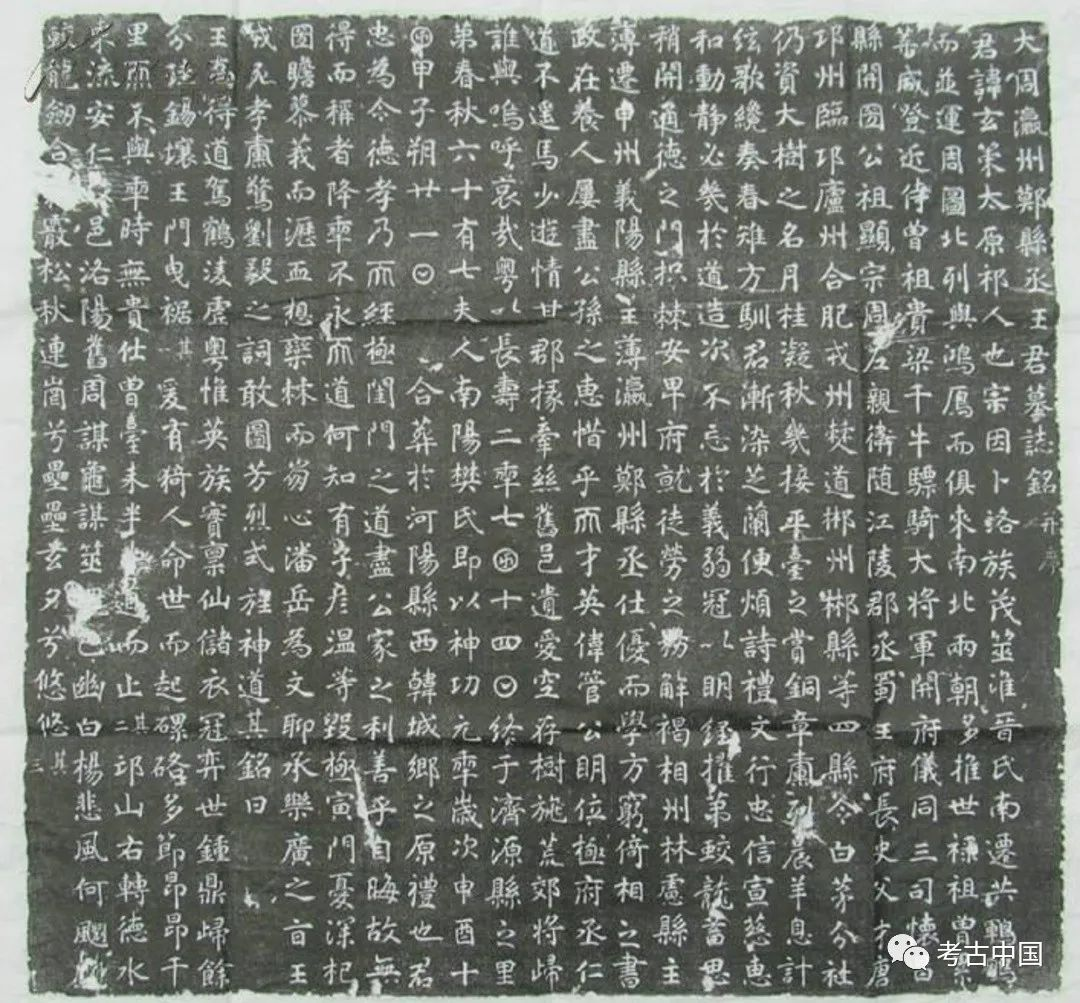 大周瀛州鄚縣丞王君墓誌銘并序
君諱玄策太原祁人也宗因卜洛族茂筮淮晉氏南遷共鵷
而並運周圖北列與鴻鴈而俱來南北兩朝多推世祿祖曾
著威登近侍曾祖貴梁千牛驃騎大將軍開府儀同三司懷
縣開圀公祖顯宗周左親衛隨江陵郡丞蜀王府長史父才唐
邛州臨邛廬州合肥戎州僰道郴州郴縣等四縣令白茅分社
仍資大樹之名月桂凝秋幾接平臺之賞銅章肅列晨羊息計
絃歌纔奏春雉方馴君漸染芝蘭便煩詩禮文行忠信宣慈惠
和動靜必幾於道造次不忘於義弱冠以明經擢第蛟龍畜思
稍開通德之門枳棘安卑府就徒勞之務解褐相州林慮縣主
薄遷申州義陽縣主薄瀛州鄚縣丞仕優而學方窮倚相之書
政在養人屢盡公孫之惠惜乎而才英偉管公明位極府丞仁
道不遥馬少遊情甘郡掾牽絲舊邑遺愛空存樹旐荒郊將歸
誰與嗚呼哀哉粵以長壽二𠡦七囝十四〇終于濟源縣之里
第春秋六十有七夫人南陽樊氏即以神功元𠡦歲次申酉十
囝甲子朔廿一〇合葬於河陽縣西韓城鄉之原禮也君
忠為令德孝乃而經極閨門之道盡公家之利善乎自晦故無
得而稱者降𠡦不永而道何知有子彦温等毀極寅門憂深杞
圀瞻慕義而瀝血想欒林而𤼵心潘岳為文聊承樂廣之旨王
戎死孝肅驚劉毅之詞敢圖芳烈式旌神道其銘曰
王喬得道駕鶴淩虛粵惟英族實禀仙儲衣冠弈世鍾鼎歸餘
分珪錫壤王門曳裾其一爰有猗人命世而起礧硌多節昂昂千
里而不與𠡦時無貴仕曾臺未半而止其二邙山右轉德水
東流安仁邑洛陽舊周謀龜謀筮幽白楊悲風何颸
龍劒合霰松秋連崗兮壘壘玄夕兮悠悠其三
考古中国